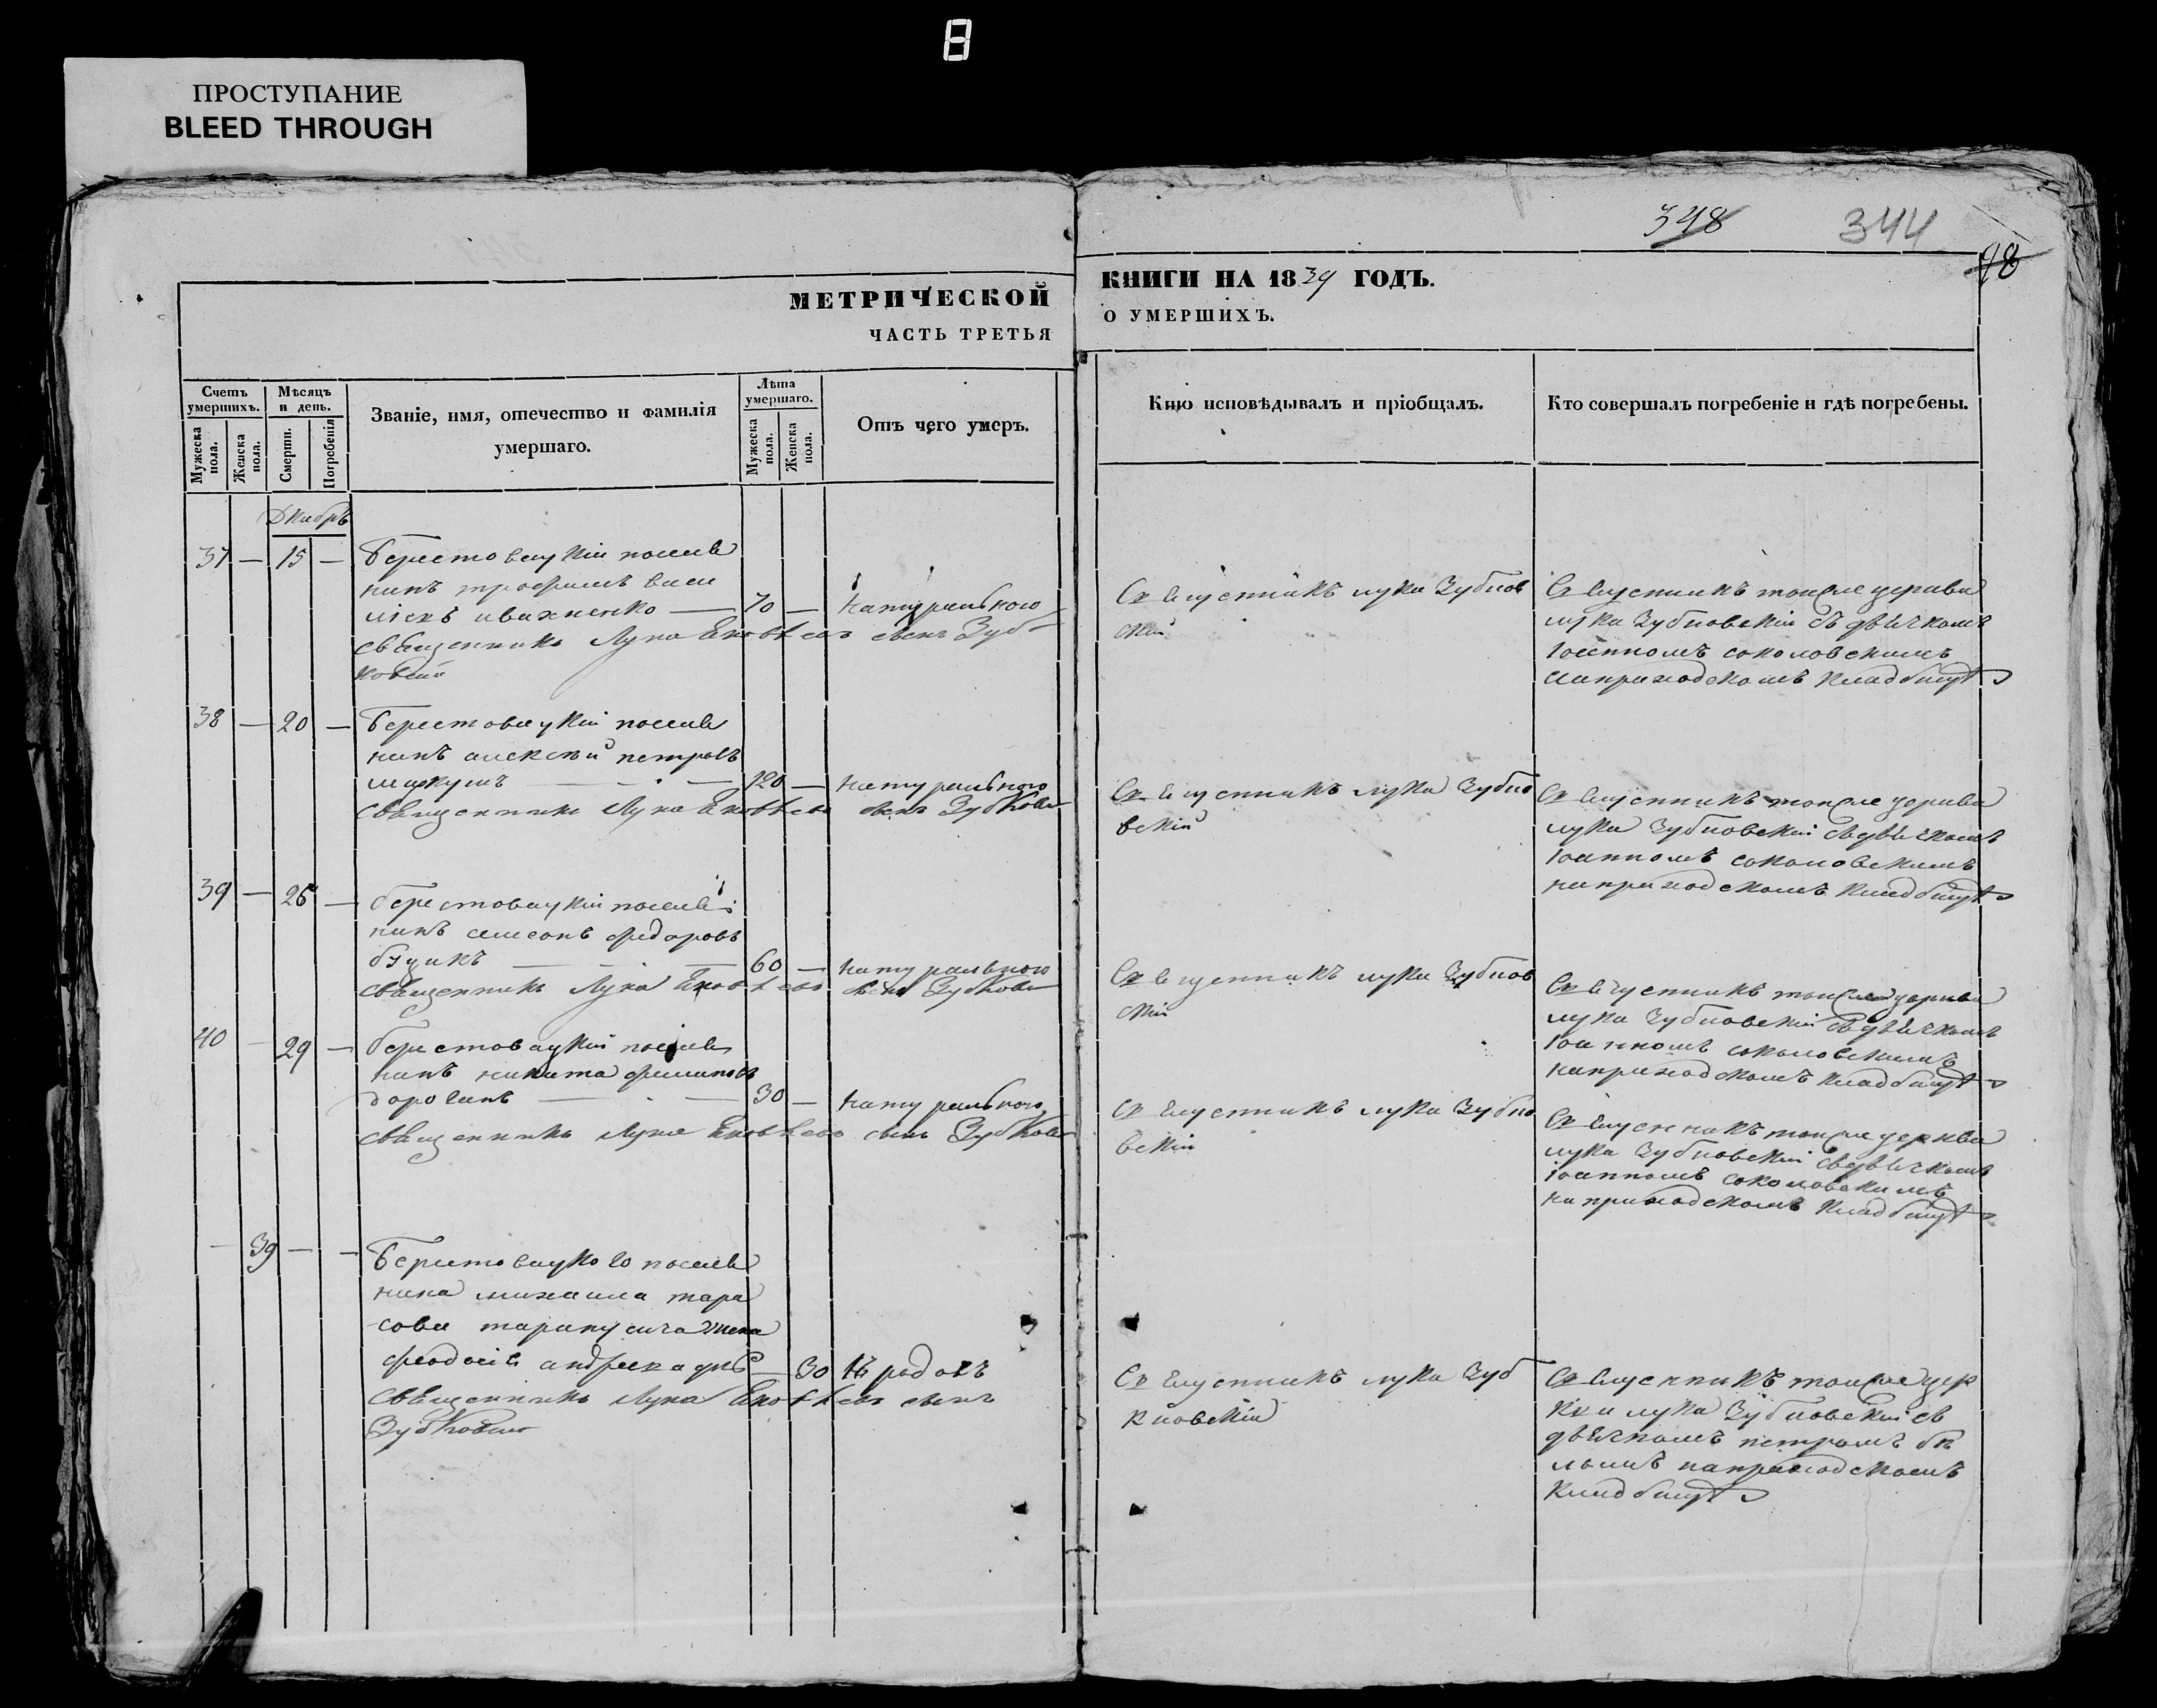 8
ПРОСТУПАНИЕ
BLEED THROUGH
348 344
98
МЕТРИЧЕСКОЙ
ЧАСТЬ ТРЕТЬЯ
КНИГИ НА 1839 ГОДЪ.
О УМЕРШИХЪ.
Счетъ умершихъ.
Мужеска пола.
Женска пола.
Мѣсяцъ и день.
Смерти.
Погребенія
Званіе, имя, отечество и фамилія
умершаго.
Лѣта умершаго.
Мужеска пола.
Женска пола.
Отъ чего умеръ.
Кто исповѣдывалъ и пріобщалъ.
Кто совершалъ погребеніе и гдѣ погребены.
Декабръ
37 — 15 — Берестовецкій поселя
нинъ трофимъ васи
ліевъ ивахненко — 70 — натурального
священникъ Лука Яковлевъ сынъ Зуб
ковскій
Священникъ лука Зубков
скій
Священникъ тоиже церкви
лука Зубковскій съ дьячкомъ
Іоанномъ соколовскимъ
наприходскомъ кладбищѣ
38 — 20 — Берестовецкій поселя
нинъ алексѣй петровъ
— 120 — натурального
священникъ Лука Яковлевъ сынъ Зубковскій
Священникъ лука Зубко
вскій
Священникъ тоиже церкви
лука Зубковскій съ дьячкомъ
Іоанномъ соколовскимъ
наприходскомъ кладбищѣ
39 — 26 — берестовецкій поселя
нинъ симеонъ федоровъ
— 60 — натурального
священникъ Лука Яковлевъ сынъ Зубковскій
Священникъ лука Зубков
скій
Священникъ тоиже церкви
лука Зубковскій съ дьячкомъ
Іоанномъ соколовскимъ
наприходскомъ кладбищѣ
40 — 29 — берестовецкій поселя
нинъ никита филиповъ
— 30 — натурального
священникъ Лука Яковлевъ сынъ Зубковскій
Священникъ лука Зубко
вскій
Священникъ тоиже церкви
лука Зубковскій съ дьячкомъ
Іоанномъ соколовскимъ
наприходскомъ кладбищѣ
— 39 — — Берестовецкого поселя
нина михаила тара
сова жена
феодосія — 30 въ родахъ
священникъ Лука Яковлевъ сынъ
Зубковскій
Священникъ лука Зуб
ковскій
Священникъ тоиже цер
кви лука Зубковскій съ
дьячкомъ петромъ бѣ
лымъ наприходскомъ
кладбищѣ